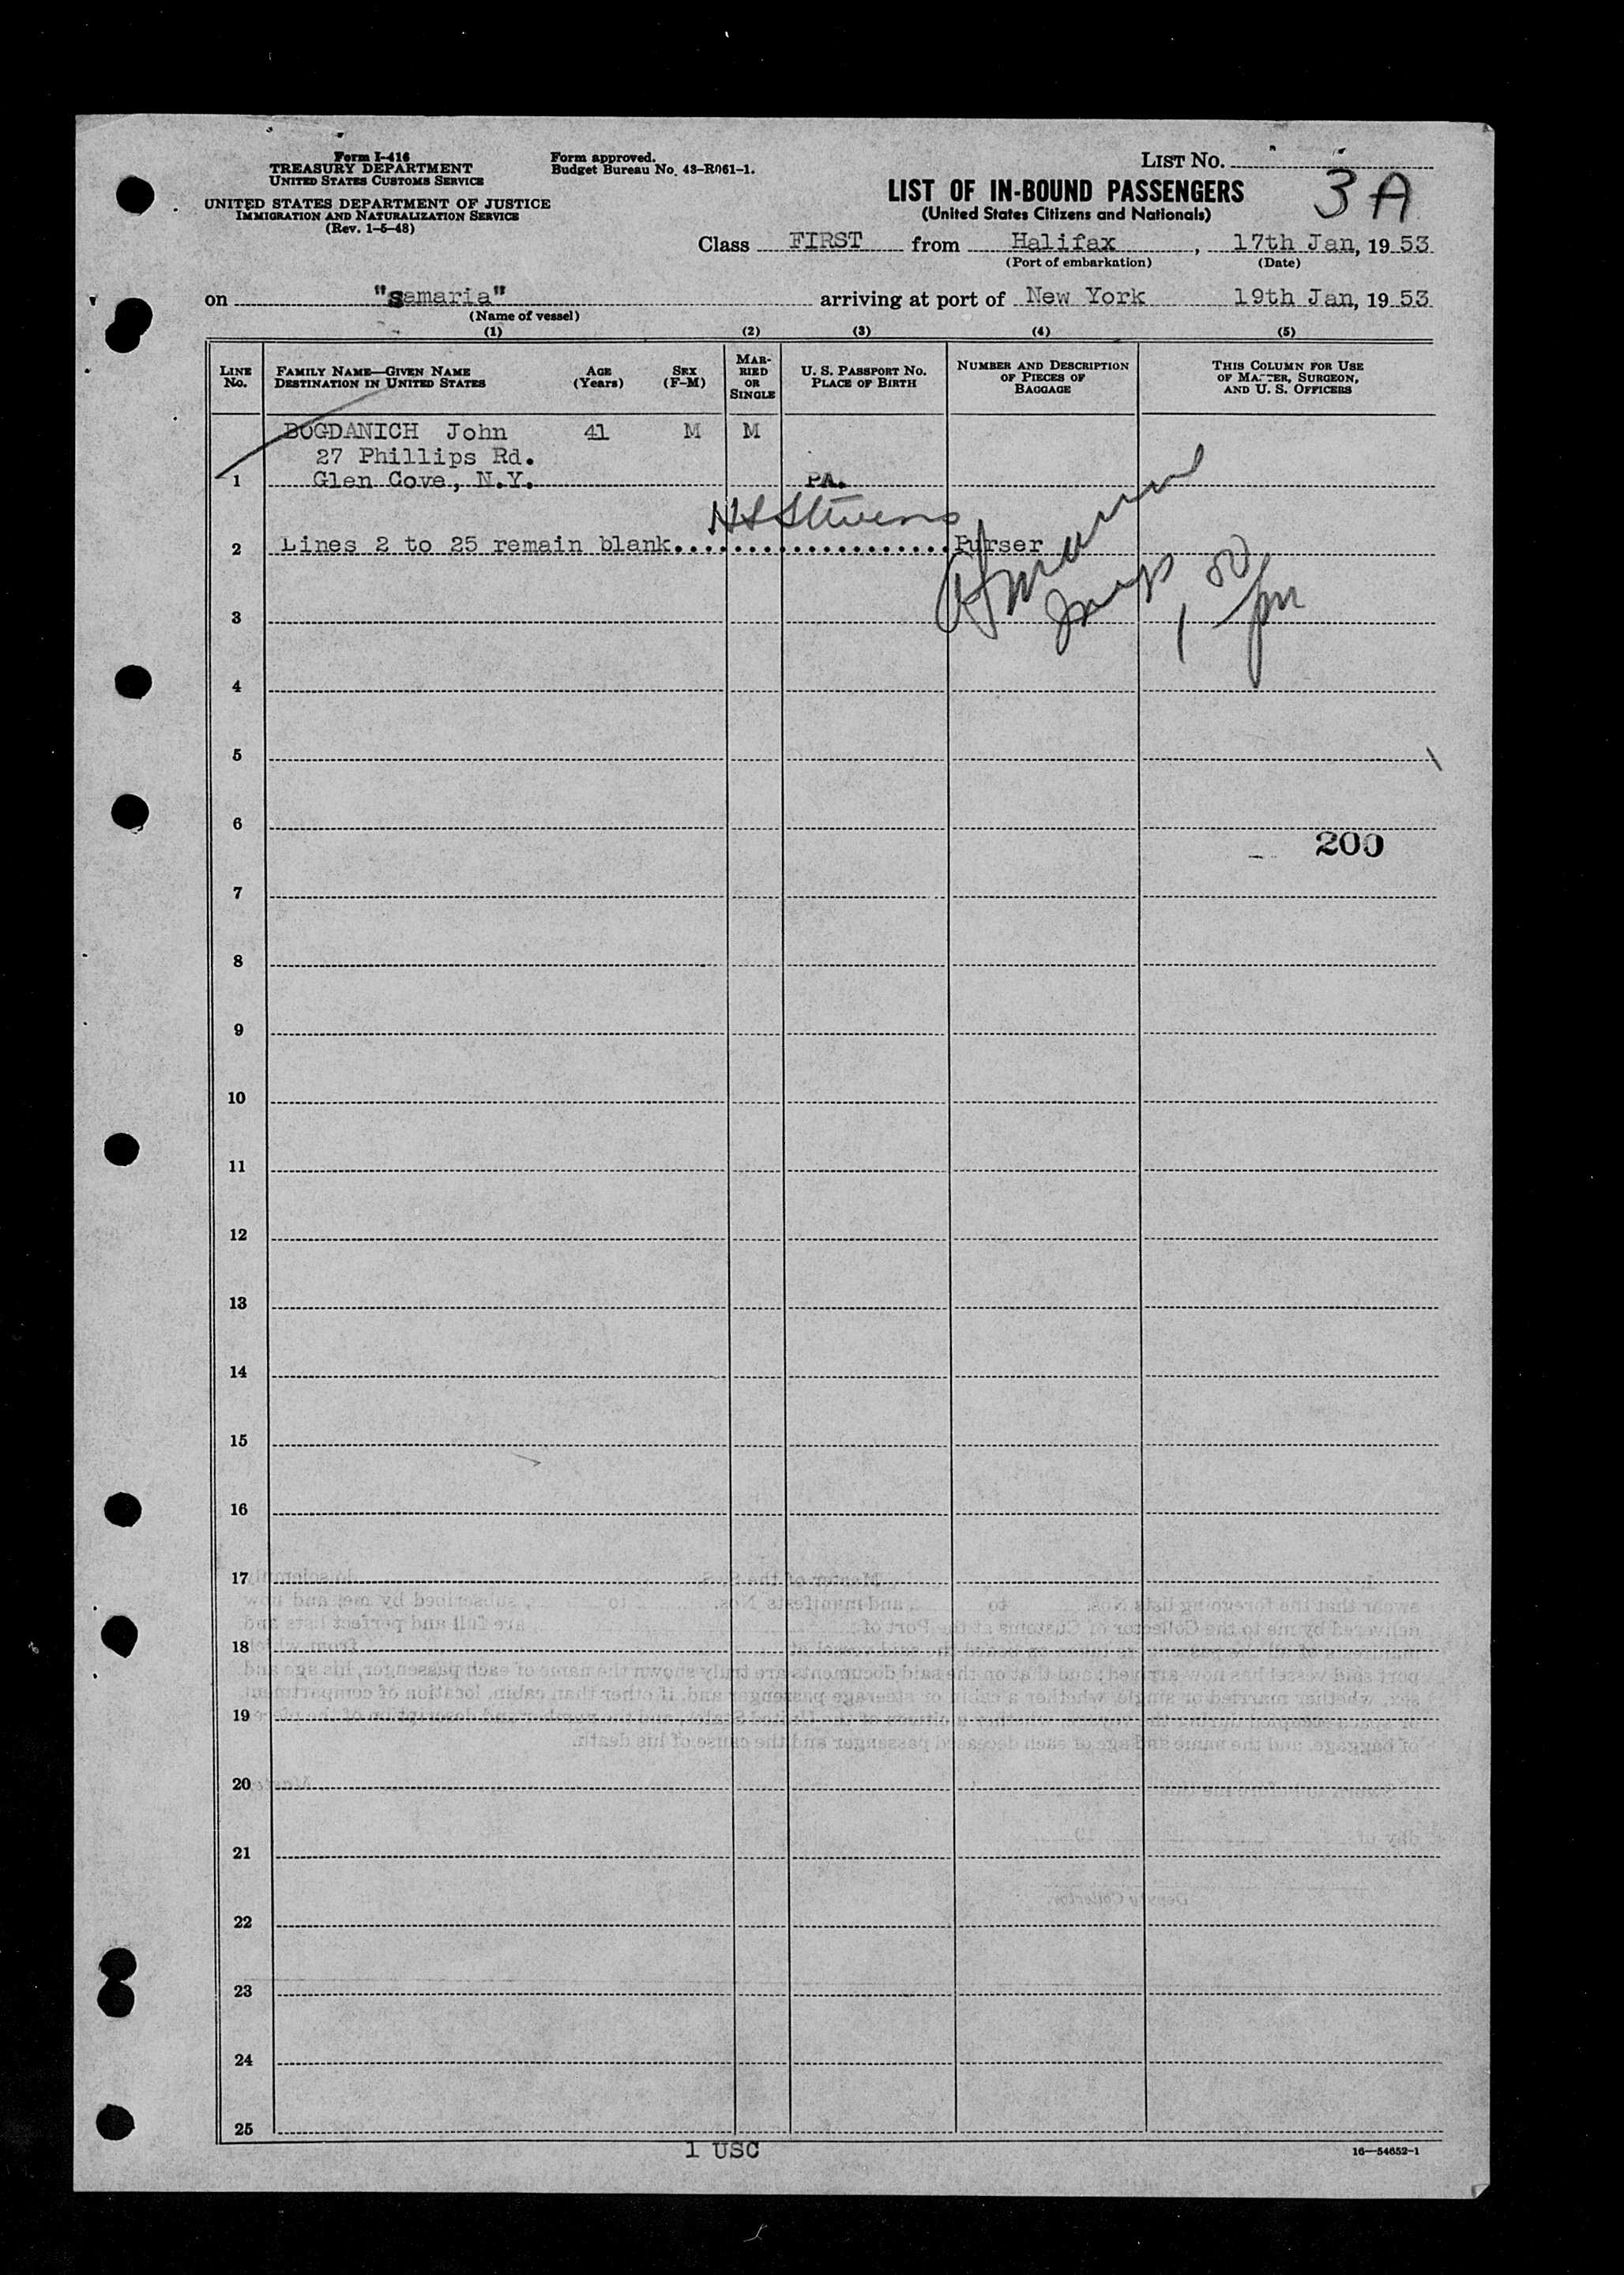 Form I-416
TREASURY DEPARTMENT
UNITED STATES CUSTOMS SERVICE
UNITED STATES DEPARTMENT OF JUSTICE
IMMIGRATION AND NATURALIZATION SERVICE
(Rev. 1-5-48)
Form approved.
Budget Bureau No. 43-R061-1.
LIST NO.
3A
LIST OF IN-BOUND PASSENGERS
(United States Citizens and Nationals)
Class FIRST from Halifax, 17th Jan, 19 53
(Port of embarkation) (Date)
on "Samaria" arriving at port of New York 19th Jan, 19 53
(Name of vessel)
(1) (2) (3) (4) (5)
LINE NO.
FAMILY NAME—GIVEN NAME
DESTINATION IN UNITED STATES
AGE
(Years)
SEX
(F-M)
MAR-
RIED
OR
SINGLE
U. S. PASSPORT NO.
PLACE OF BIRTH
NUMBER AND DESCRIPTION
OF PIECES OF
BAGGAGE
THIS COLUMN FOR USE
OF MASTER, SURGEON,
AND U. S. OFFICERS
BOGDANICH John 41 M M
27 Phillips Rd.
1 Glen Cove, N.Y. PA.
H S Stevens
2 Lines 2 to 25 remain blank....................Purser
1 50 pm
3
4
5
6
200
7
8
9
10
11
12
13
14
15
16
17
18
19
20
21
22
23
24
25
1 USC
16—54652-1